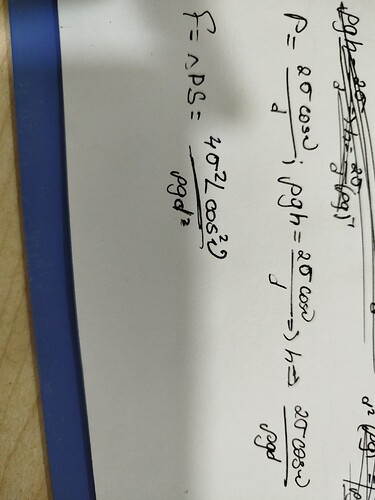 ρgh = 2σ
P = 2σ cosν / d ; ρgh = 2σ cosν / d => h = 2σ cosν / ρgd
F = ΔPS = 4σ²L cos²ν / ρgd²